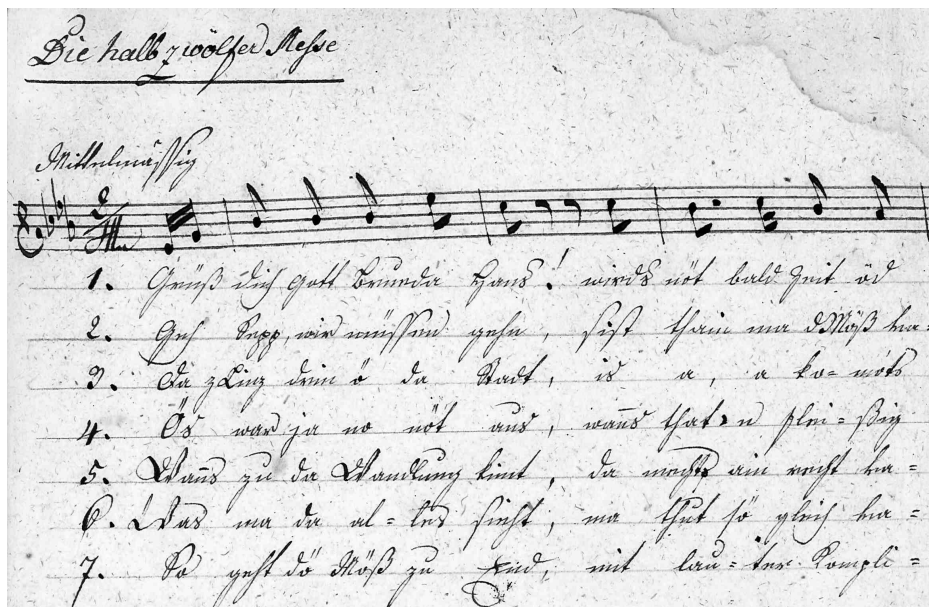 Die halb zwölfer Messe
Mittelmässig
1. Grüß dich Gott Brueda Hans! wirds nöt bald Zeit öd
2. Geh Sepp, wir müssen gehn, sist thain ma d Möß va=
3. Da z Linz drin ö da Stadt, is a, a ko=mots
4. Ös war ja no nöt aus, wanns that n flei=ßig
5. Wanns zu da Wandlung kimt, da mecht ain recht va=
6. Was ma da al=les sieht, ma thut sö gleich va=
7. So geht dö Möß zu End, mit lau=ter Kompli=